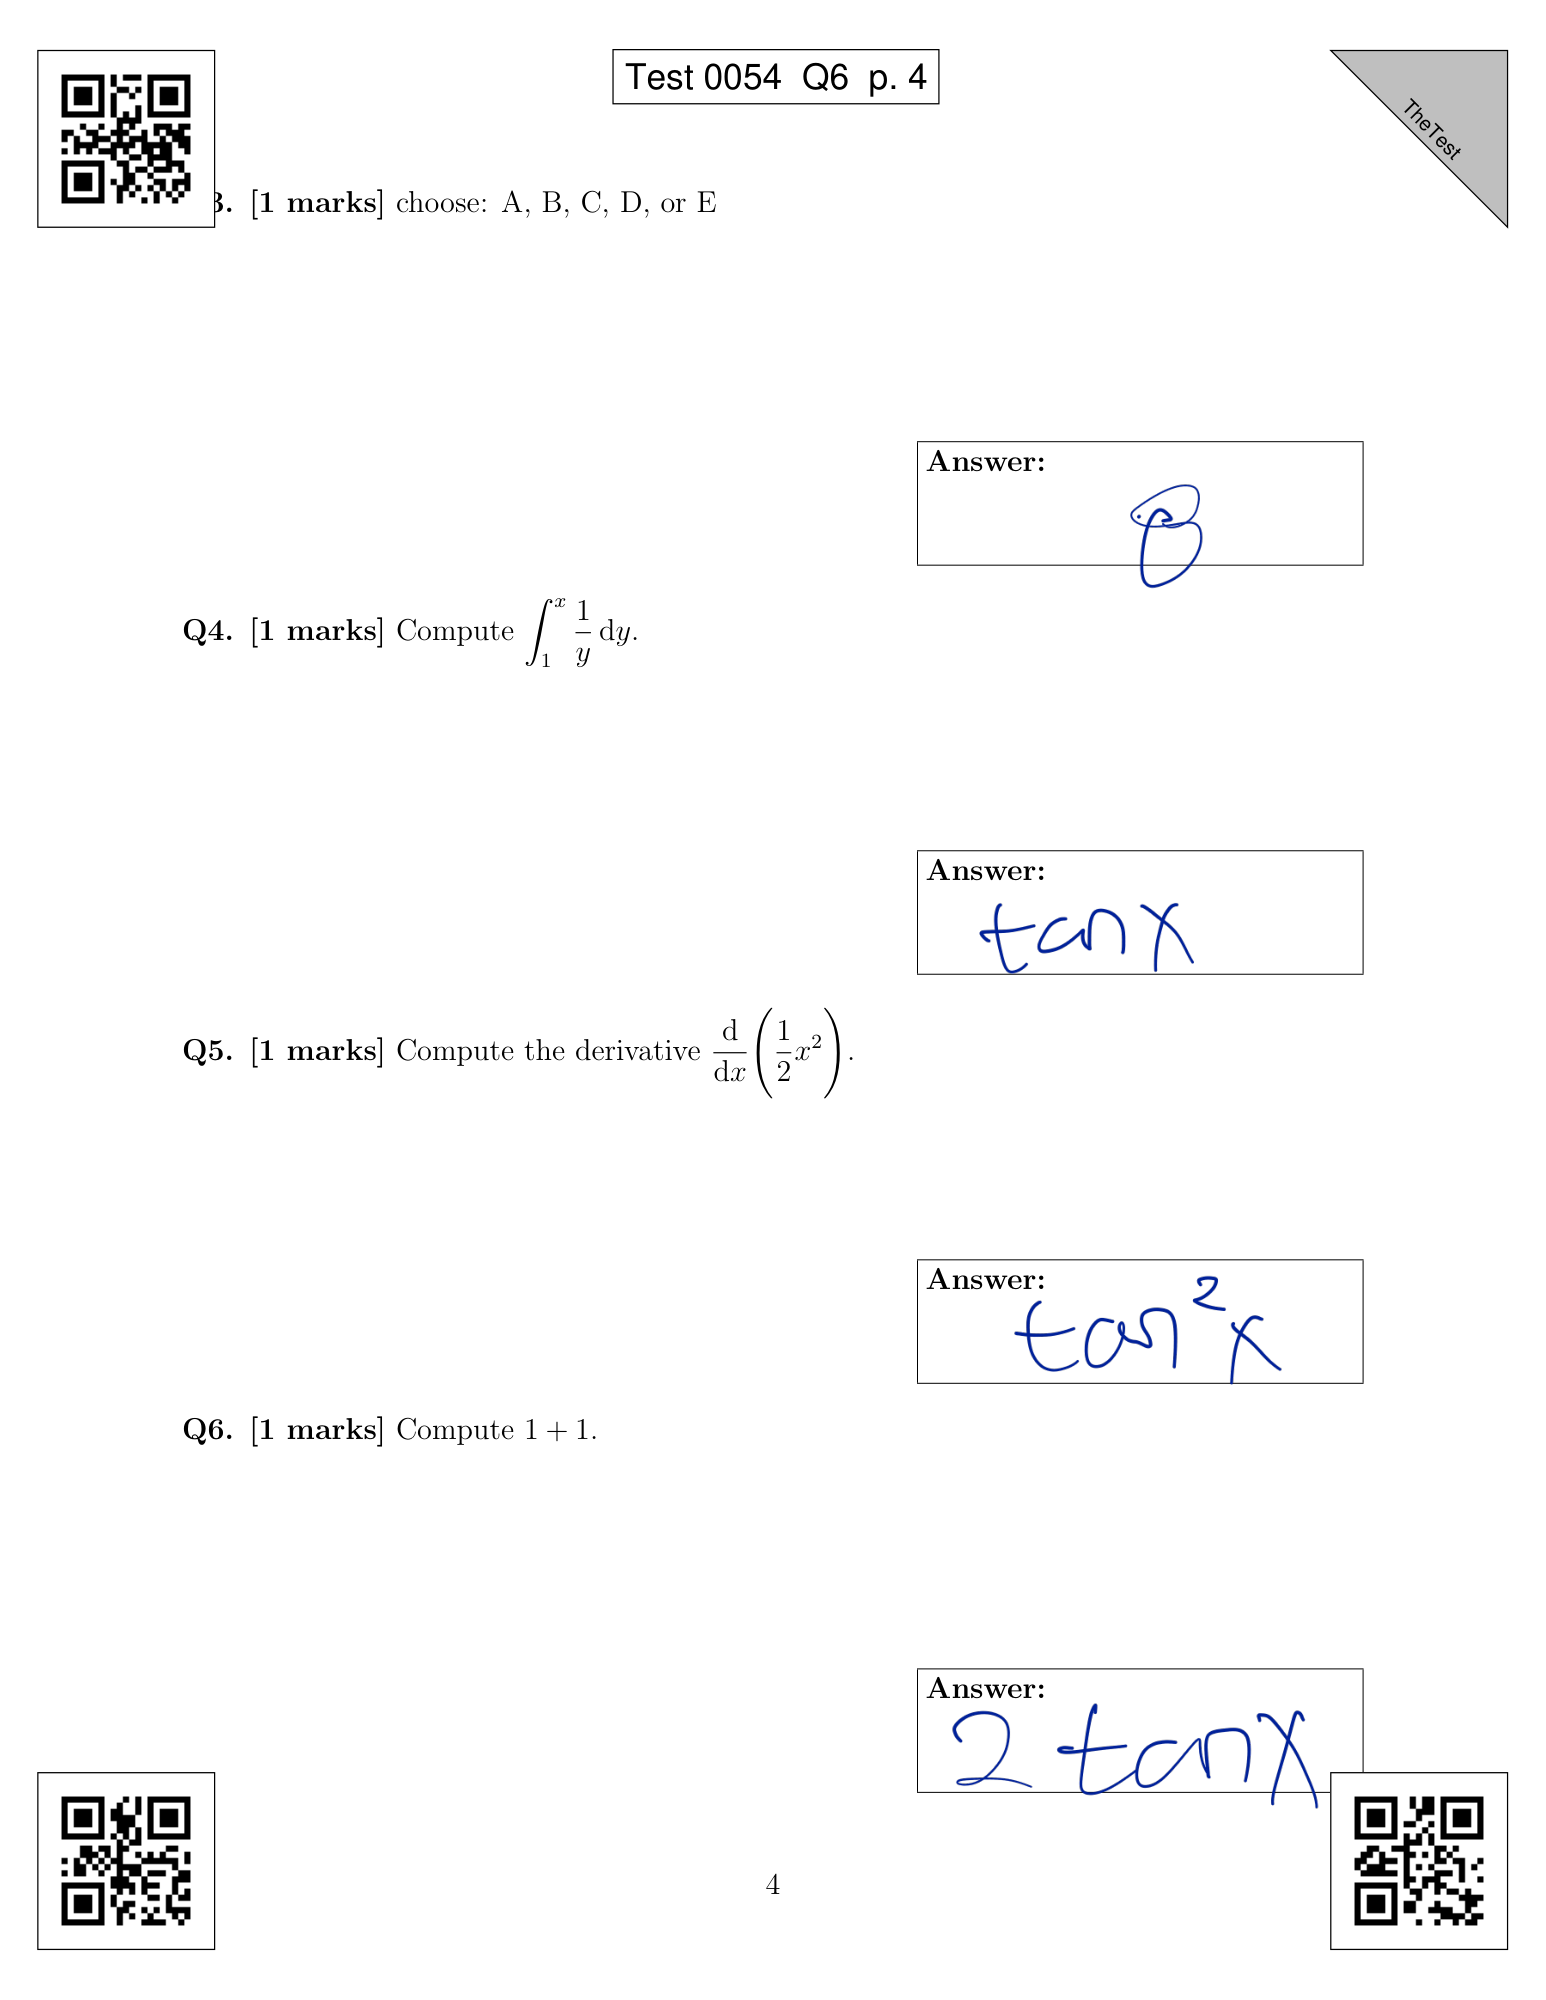 Test 0054 Q6 p. 4
TheTest
3. [1 marks] choose: A, B, C, D, or E
Answer:
B
Q4. [1 marks] Compute \int_1^x \frac{1}{y} dy.
Answer:
tan x
Q5. [1 marks] Compute the derivative \frac{d}{dx}\left(\frac{1}{2}x^2\right).
Answer:
tan²x
Q6. [1 marks] Compute 1 + 1.
Answer:
2 tan x
4